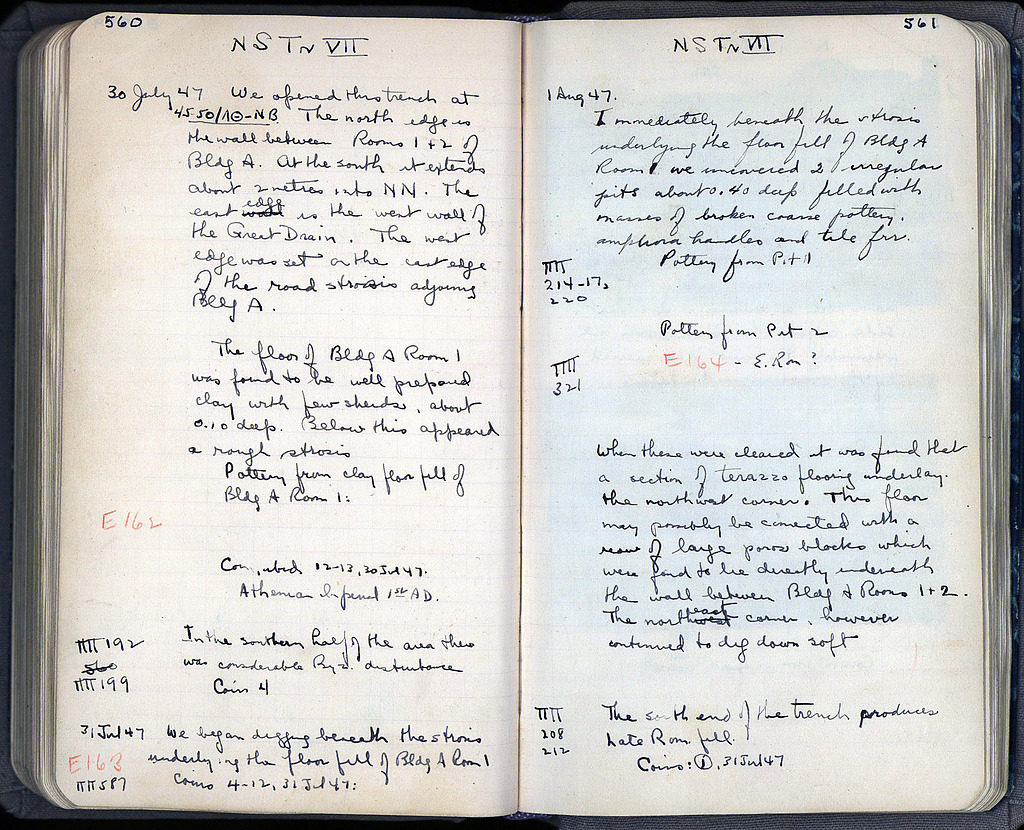 560
NS Tr VII
30 July '47 We opened this trench at
45-50/ΛΘ-ΝΒ The north edge is
the wall between Rooms 1+2 of
Bldg A. At the south it extends
about 2 metres into NN. The
edge
east wall is the west wall of
the Great Drain. The west
edge was set on the east edge
of the road strosis adjoining
Bldg A.
The floor of Bldg A Room 1
was found to be well prepared
clay with few sherds, about
0.10 deep. Below this appeared
a rough strosis
Pottery from clay floor fill of
Bldg A Room 1:
E 162
12-13, 30 Jul 47.
Athenian Imperial 1st AD.
In the southern half of the area there
ΠΠ 192
was considerable Byz. disturbance
560
ΠΠ 199
Coin 4
31 Jul 47 We began digging beneath the strosis
E 163
underlying the floor fill of Bldg A Room 1
ΠΠ 587
Coins 4-12, 31 Jul 47:
561
NS Tr VII
1 Aug 47.
Immediately beneath the strosis
underlying the floor fill of Bldg A
Room 1 we uncovered 2 irregular
pits about 0.40 deep filled with
masses of broken coarse pottery,
amphora handles and tile frr.
Pottery from Pit 1
ΠΠ
214-17,
220
Pottery from Pit 2
E 164 - E. Rom ?
ΠΠ
321
When these were cleared it was found that
a section of terazzo flooring underlay
the northwest corner. This floor
may possibly be connected with a
row of large poros blocks which
were found to lie directly underneath
the wall between Bldg A Rooms 1+2.
east
The northwest corner, however
continued to dig down soft
ΠΠ
208
212
The south end of the trench produces
Late Rom. fill.
Coins: 1, 31 Jul 47